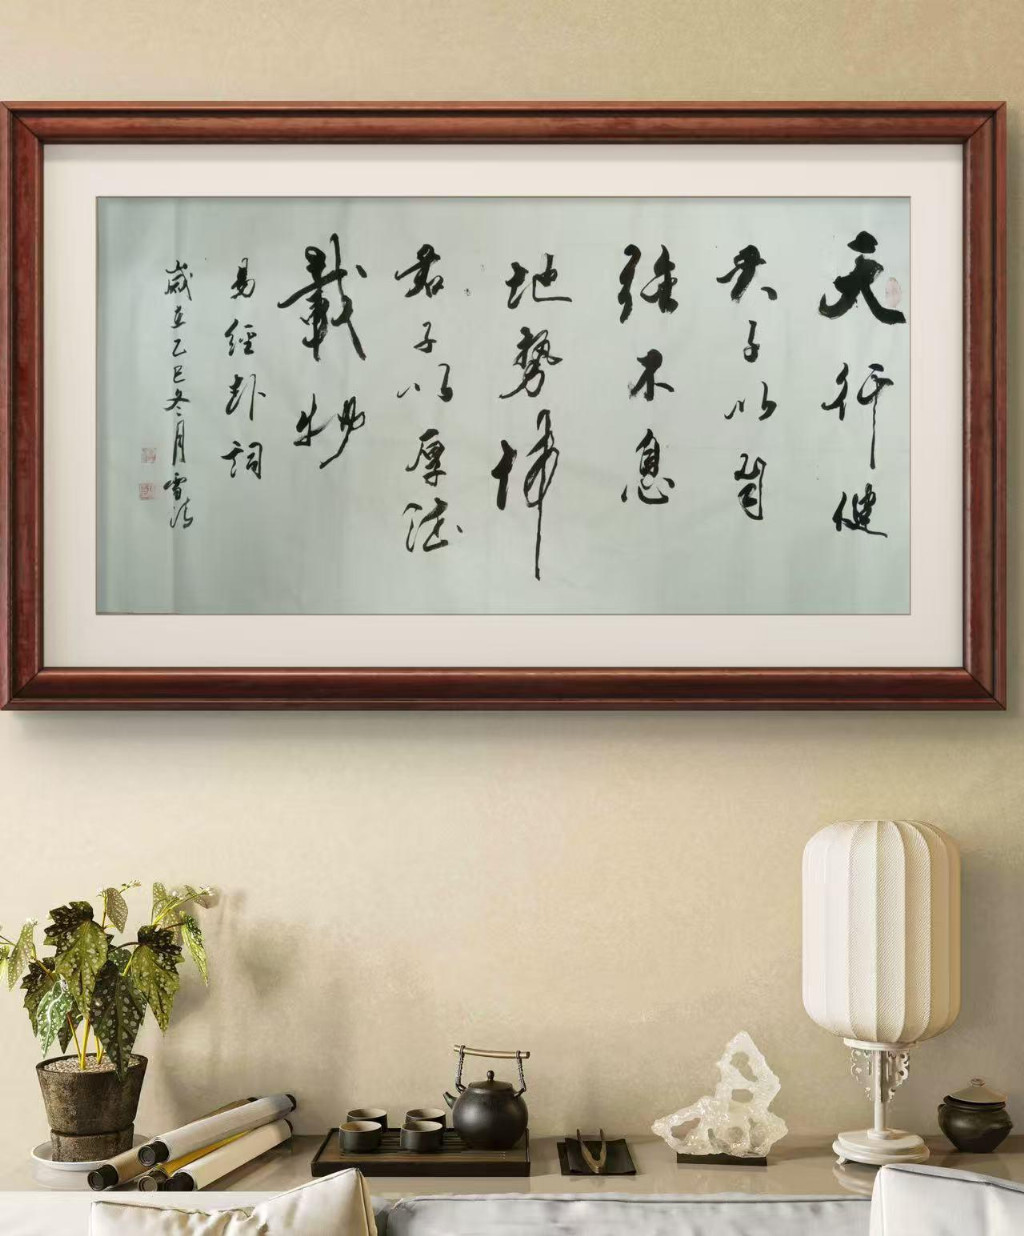 天行健
君子以自
强不息
地势坤
君子以厚德
載物
易經卦詞
歲在乙巳冬月雪清